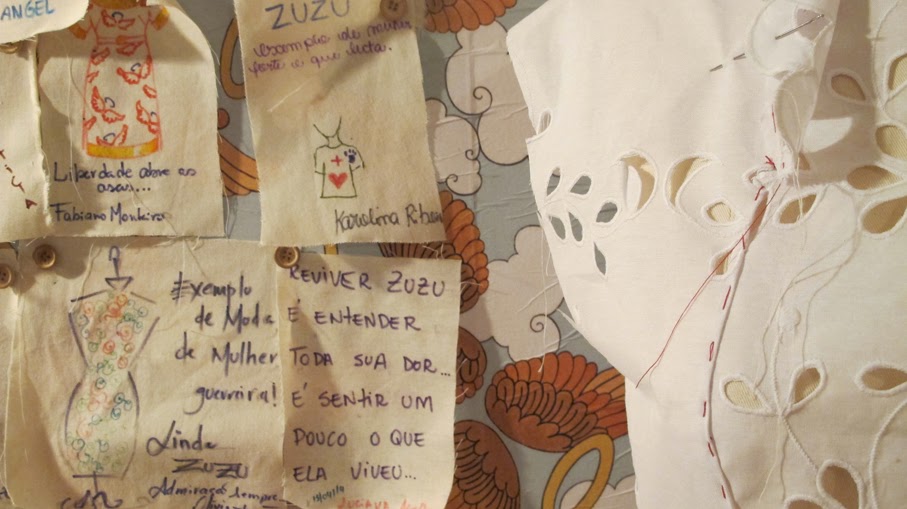 ANGEL
Liberdade abre as
asas...
Fabiano Monteiro
ZUZU
exemplo de mulher
forte e que luta.
Karolina
Exemplo
de Moda
de Mulher
guerreira!
Linda
ZUZU
Admiração sempre
REVIVER ZUZU
É ENTENDER
TODA SUA DOR...
É SENTIR UM
POUCO O QUE
ELA VIVEU...